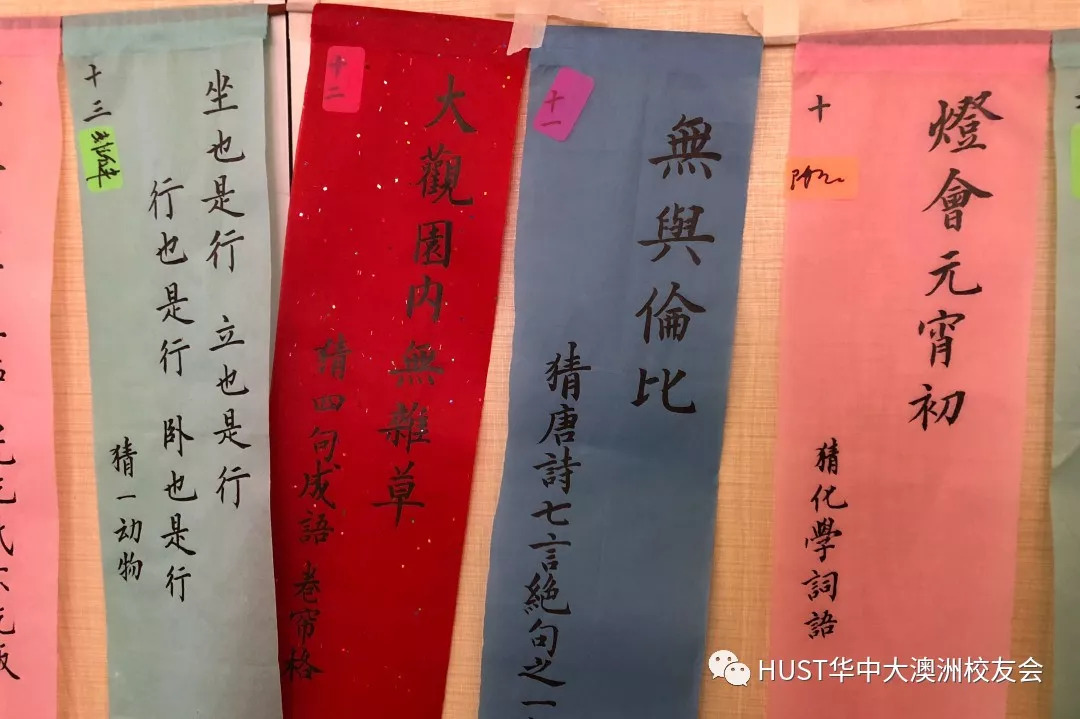 燈會元宵初
十
猜化學詞語
無與倫比
十一
猜唐詩七言絕句之一
大觀園内無雜草
十二
猜四句成語 卷帘格
坐也是行 立也是行
行也是行 卧也是行
十三
猜一动物
HUST华中大澳洲校友会